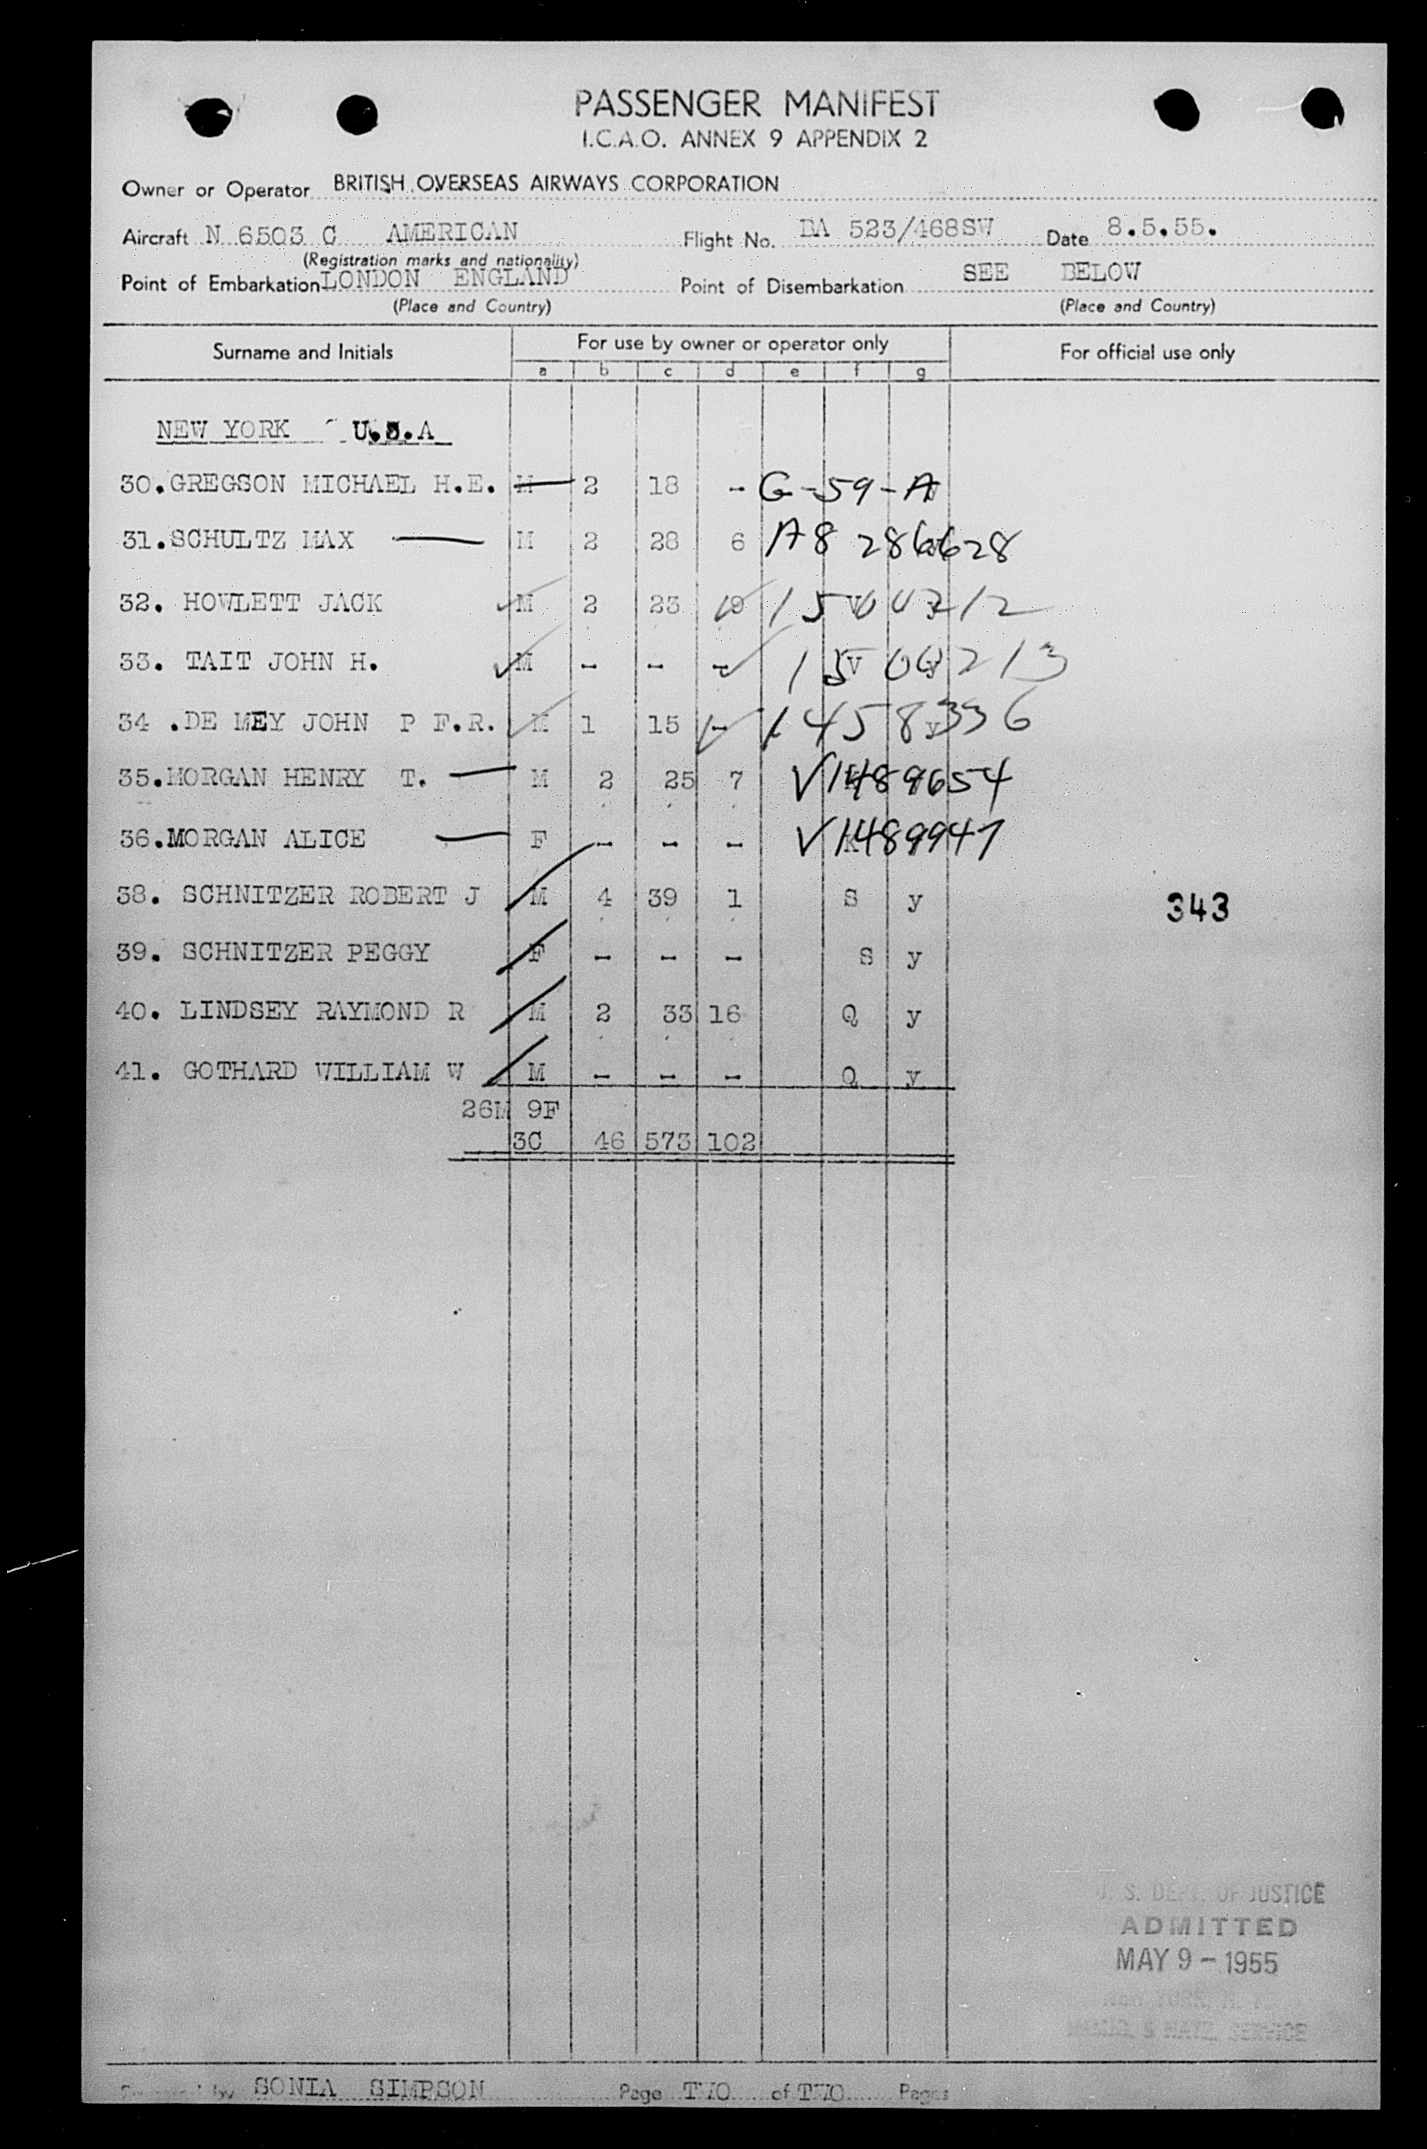 PASSENGER MANIFEST
I.C.A.O. ANNEX 9 APPENDIX 2
Owner or Operator BRITISH OVERSEAS AIRWAYS CORPORATION
Aircraft N 6503 C AMERICAN Flight No. BA 523/468SW Date 8.5.55.
(Registration marks and nationality)
Point of Embarkation LONDON ENGLAND Point of Disembarkation SEE BELOW
(Place and Country) (Place and Country)
Surname and Initials For use by owner or operator only For official use only
a b c d e f g
NEW YORK U.S.A
30. GREGSON MICHAEL H.E. M 2 18 - G-59-A
31. SCHULTZ MAX M 2 28 6 A8 286628
32. HOWLETT JACK M 2 23 19
33. TAIT JOHN H. M - - -
34 . DE MEY JOHN P F.R. M 1 15 - 1458336
35. MORGAN HENRY T. M 2 25 7 V1489654
36. MORGAN ALICE F - - - V1489947
38. SCHNITZER ROBERT J M 4 39 1 S y 343
39. SCHNITZER PEGGY F - - - S y
40. LINDSEY RAYMOND R M 2 33 16 Q y
41. GOTHARD WILLIAM W M - - - Q y
26M 9F
3C 46 573 102
U. S. DEPT. OF JUSTICE
ADMITTED
MAY 9 - 1955
NEW YORK, N. Y.
IMMIG. & NATZ. SERVICE
by SONIA SIMPSON Page TWO of TWO Pages